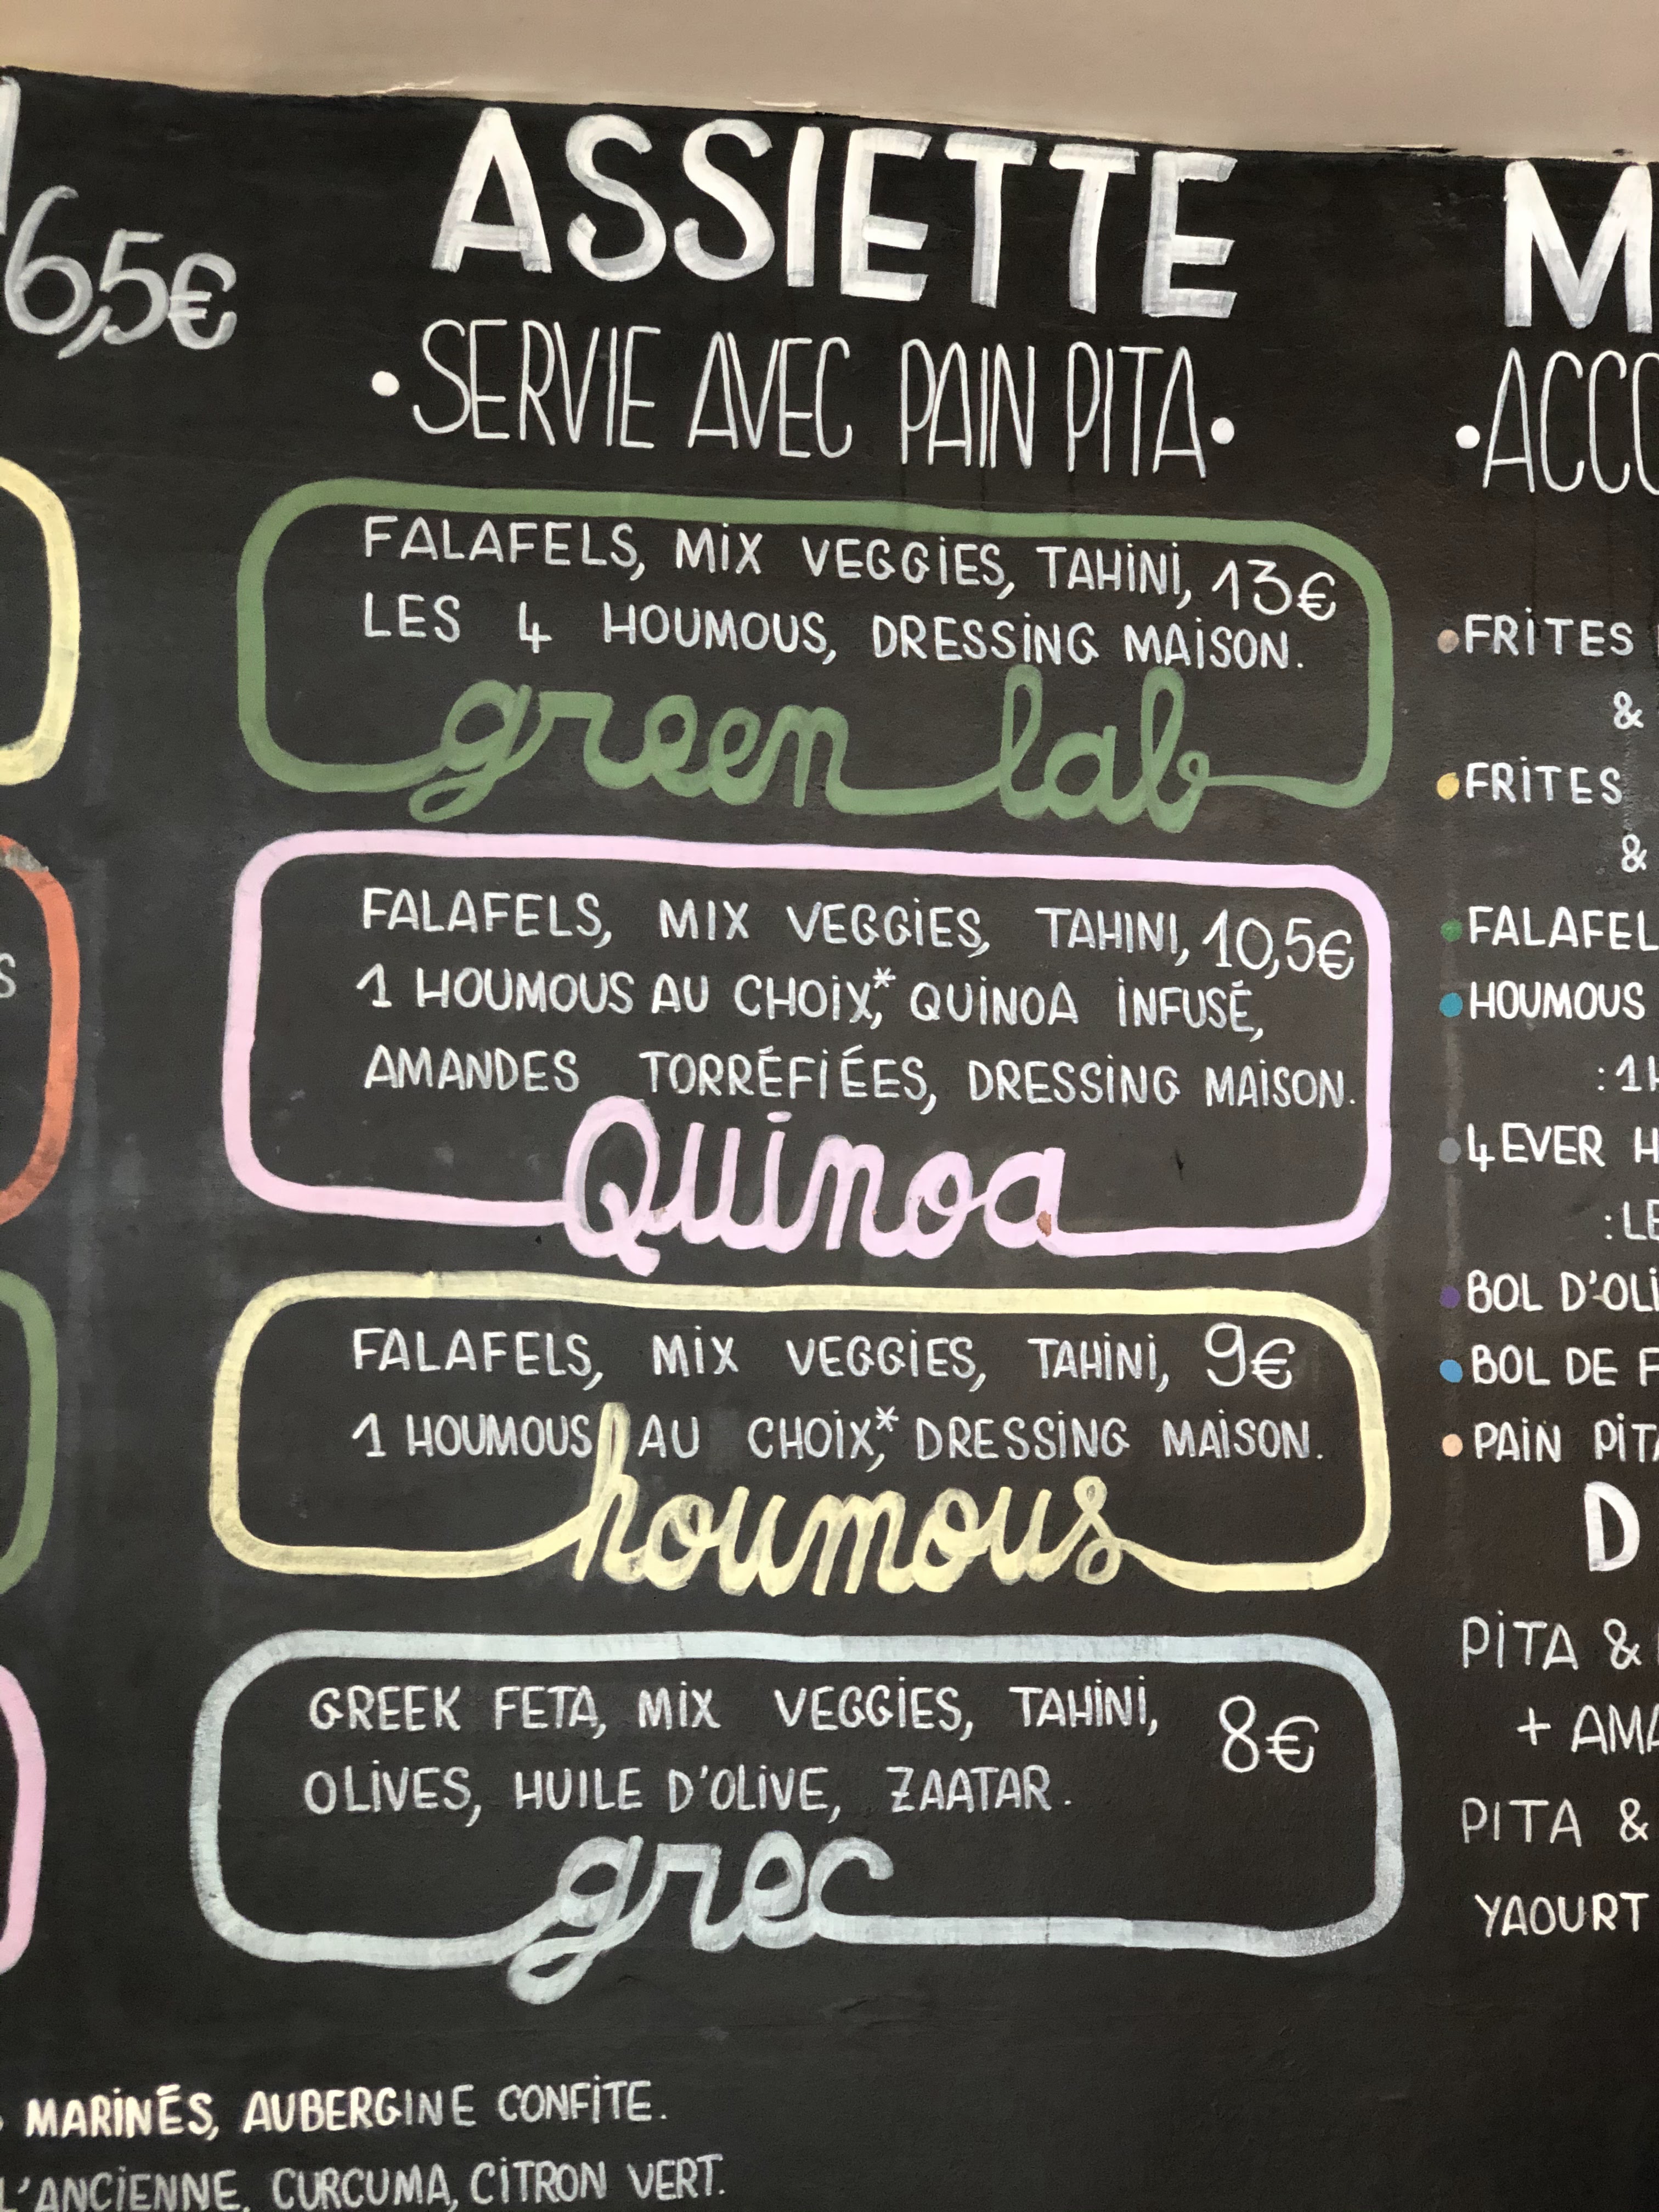 6,5€
ASSIETTE
• SERVIE AVEC PAIN PITA •
FALAFELS, MIX VEGGIES, TAHINI, 13€
LES 4 HOUMOUS, DRESSING MAISON.
green lab
FALAFELS, MIX VEGGIES, TAHINI, 10,5€
1 HOUMOUS AU CHOIX*, QUINOA INFUSÉ,
AMANDES TORRÉFIÉES, DRESSING MAISON.
Quinoa
FALAFELS, MIX VEGGIES, TAHINI, 9€
1 HOUMOUS AU CHOIX*, DRESSING MAISON.
houmous
GREEK FETA, MIX VEGGIES, TAHINI, 8€
OLIVES, HUILE D'OLIVE, ZAATAR.
grec
MARINÉS, AUBERGINE CONFITE.
L'ANCIENNE, CURCUMA, CITRON VERT.
• FRITES
&
• FRITES
&
• FALAFEL
• HOUMOUS
: 1
• 4EVER
:
• BOL
• BOL DE
• PAIN
PITA &
+
PITA &
YAOURT